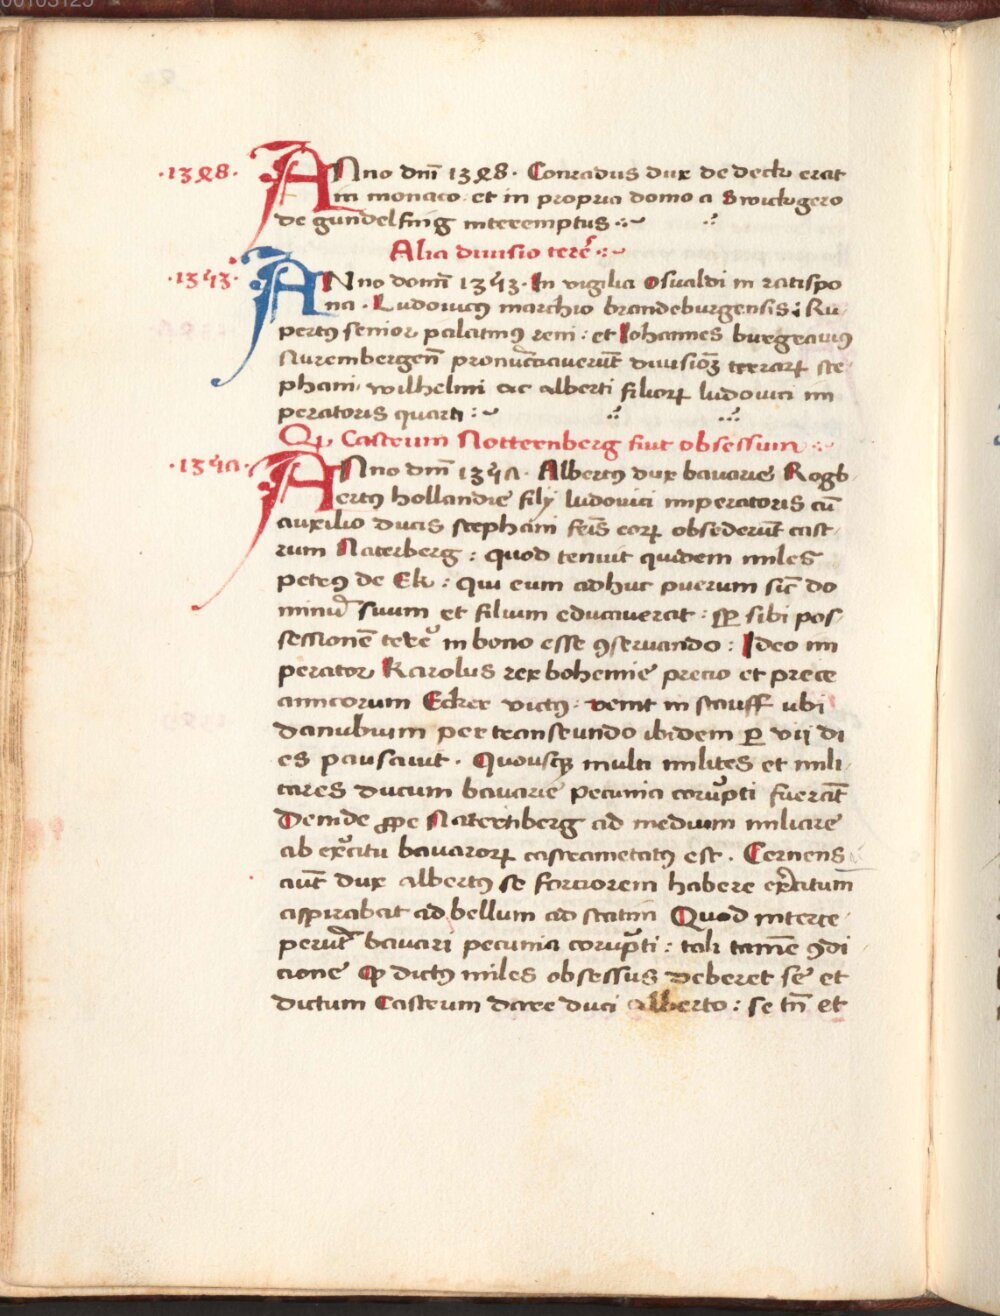 00103125
·13ꝝ8· Anno dm̄ 13ꝝ8· Conradus dux de deck erat
in monaco et in propria domo a Swickgero
de gundelfing interemptus :~
Alia diuisio terre :~
·1353· ANno domī 1353· In vigilia Osualdi in ratispo
na · Ludouicꝰ marchio brandeburgensis: Ru
pertꝰ senior palatinꝰ reni : et Iohannes burgrauiꝰ
Nurembergen̄ pronūctiauerūt diuisionē terrarꝝ ste
phani· wilhelmi ac alberti filiorꝝ ludouici im
peratoris quarti :~
Qꝫ Castrum Notternberg fiut obsessum :~
ANno dm̄ Albertꝰ dux bauarie Rogb
ertꝰ hollandie filij ludouici imperatoris cū
auxilio ducis stephani fr̄is eorꝝ obsederūt cast
rum Naterberg : quod tenuit quidem miles
petrꝰ de Ek : qui eum adhuc puerum sic̄ do
minū suum et filium educauerat : ꝑ sibi pos
sessionē terre in bono esse ꝯseruando : Ideo im
perator Karolus rex bohemie precio et prece
amicorum Ecker victꝰ· venit in stauff ubi
danubium per transeundo ibidem ꝑ vij di
es pausauit · Quousqꝫ multi milites et mili
tares ducum bauarie pecunia corrupti fuerāt
Deinde ꝓpe Naternberg ad medium miliare
ab exercitu bauarorꝝ castrametatꝰ est · Cernens
aūt dux albertꝰ se forciorem habere exercitum
aspirabat ad bellum ad statim Quod interce
perūt bauari pecunia corrupti : tali tamē ꝯdi
cione ꝙ dictꝰ miles obsessus deberet se et
dictum Castrum dare duci alberto : se tn̄ et